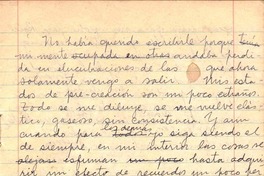 No había querido escribirle porque tenía
mi mente ocupada en otras andaba perdi-
da en elucubraciones de las que ahora
solamente vengo a salir. Mis esta-
dos de pre-creación son mi poco extraños.
Todo se me diluye, se me vuelve elás-
tico, gaseoso, sin consistencia. Y aun
cuando para todos los demás yo siga siendo el
de siempre, en mi interior las cosas se
alejan esfuman un poco hasta adqui-
rir un efecto de recuerdo un poco per